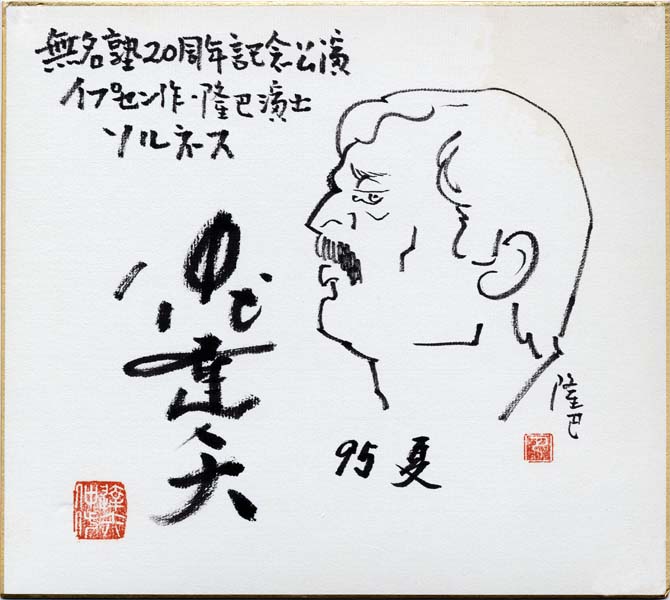 無名塾20周年記念公演
イプセン作・隆巴演出
ソルネース
仲代達矢
隆巴
95 夏